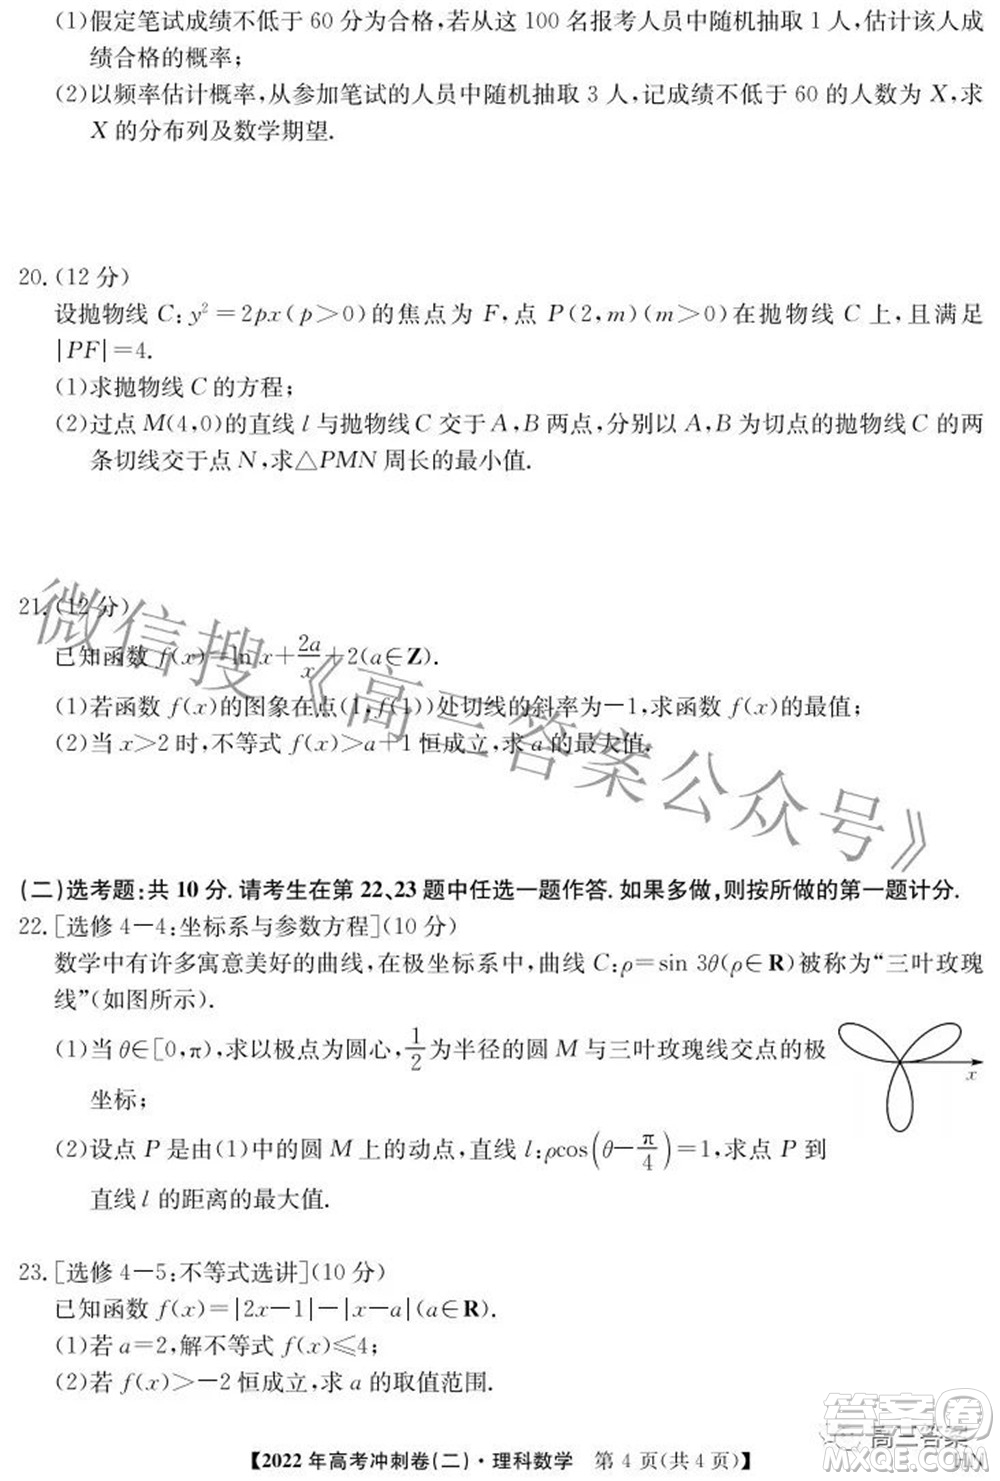 (1)假定笔试成绩不低于 60 分为合格,若从这 100 名报考人员中随机抽取 1 人,估计该人成
绩合格的概率;
(2)以频率估计概率,从参加笔试的人员中随机抽取 3 人,记成绩不低于 60 的人数为 X,求
X 的分布列及数学期望.
20.(12 分)
设抛物线 C:y²=2px(p>0)的焦点为 F,点 P(2,m)(m>0)在抛物线 C 上,且满足
|PF|=4.
(1)求抛物线 C 的方程;
(2)过点 M(4,0)的直线 l 与抛物线 C 交于 A,B 两点,分别以 A,B 为切点的抛物线 C 的两
条切线交于点 N,求△PMN 周长的最小值.
21.(12 分)
已知函数 f(x)=ln x+2a/x+2(a∈Z).
(1)若函数 f(x)的图象在点(1,f(1))处切线的斜率为-1,求函数 f(x)的最值;
(2)当 x>2 时,不等式 f(x)>a+1 恒成立,求 a 的最大值.
微信搜《高三答案公众号》
(二)选考题:共 10 分.请考生在第 22、23 题中任选一题作答.如果多做,则按所做的第一题计分.
22.[选修 4-4:坐标系与参数方程](10 分)
数学中有许多寓意美好的曲线,在极坐标系中,曲线 C:ρ=sin 3θ(ρ∈R)被称为“三叶玫瑰
线”(如图所示).
(1)当 θ∈[0,π),求以极点为圆心,1/2为半径的圆 M 与三叶玫瑰线交点的极
坐标;
x
(2)设点 P 是由(1)中的圆 M 上的动点,直线 l:ρcos(θ-π/4)=1,求点 P 到
直线 l 的距离的最大值.
23.[选修 4-5:不等式选讲](10 分)
已知函数 f(x)=|2x-1|-|x-a|(a∈R).
(1)若 a=2,解不等式 f(x)≤4;
(2)若 f(x)>-2 恒成立,求 a 的取值范围.
【2022 年高考冲刺卷(二)·理科数学 第 4 页(共 4 页)】
答案卷
高三答案
MXQE.COM